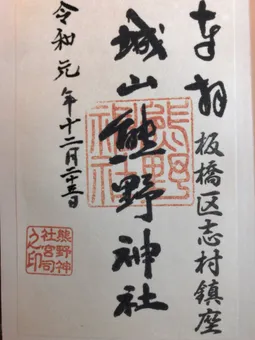 奉拝
板橋区志村鎮座
城山熊野神社
熊野神社
令和元年十二月二十五日
熊野神社宮司之印